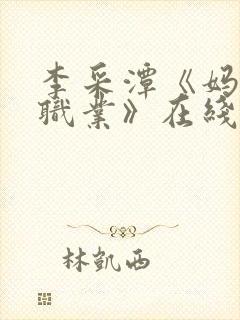 李采潭《妈
職業》在綫
林凱西